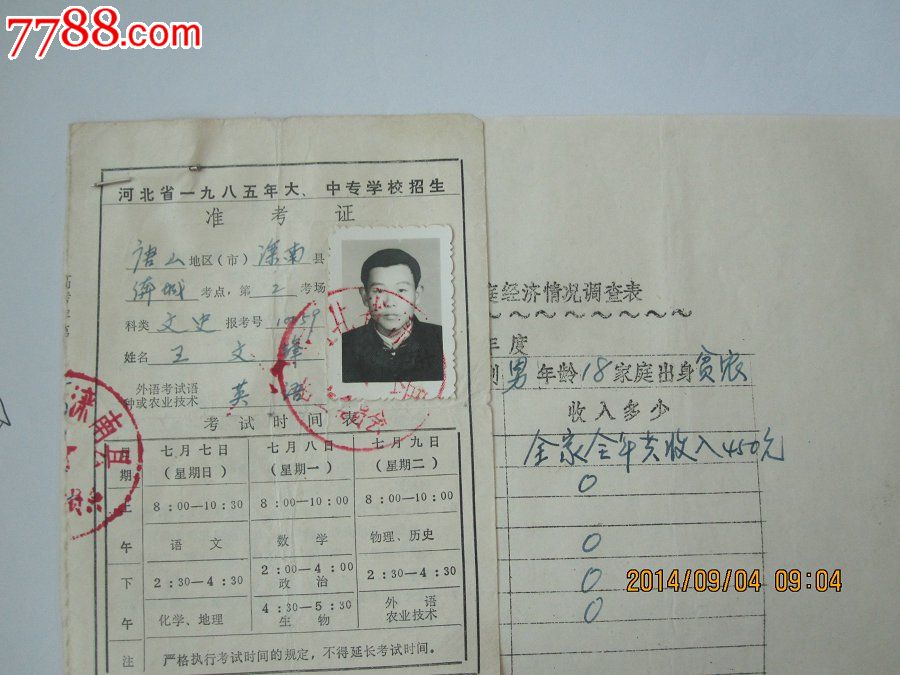 7788.com
河北省一九八五年大、中专学校招生
准考证
唐山地区(市)滦南县
倴城考点,第2考场
科类 文史 报考号
姓名 王文
外语考试语种或农业技术 英语
考试时间表
日期 七月七日(星期日) 七月八日(星期一) 七月九日(星期二)
上午 8:00—10:30 8:00—10:00 8:00—10:00
语文 数学 物理、历史
下午 2:30—4:30 2:00—4:00 2:30—4:30
政治
4:30—5:30
化学、地理 生物 外语 农业技术
注 严格执行考试时间的规定,不得延长考试时间。
滦南县
庭经济情况调查表
年度
别男年龄18家庭出身贫农
收入多少
全家全年共收入450元
0
0
0
0
2014/09/04 09:04